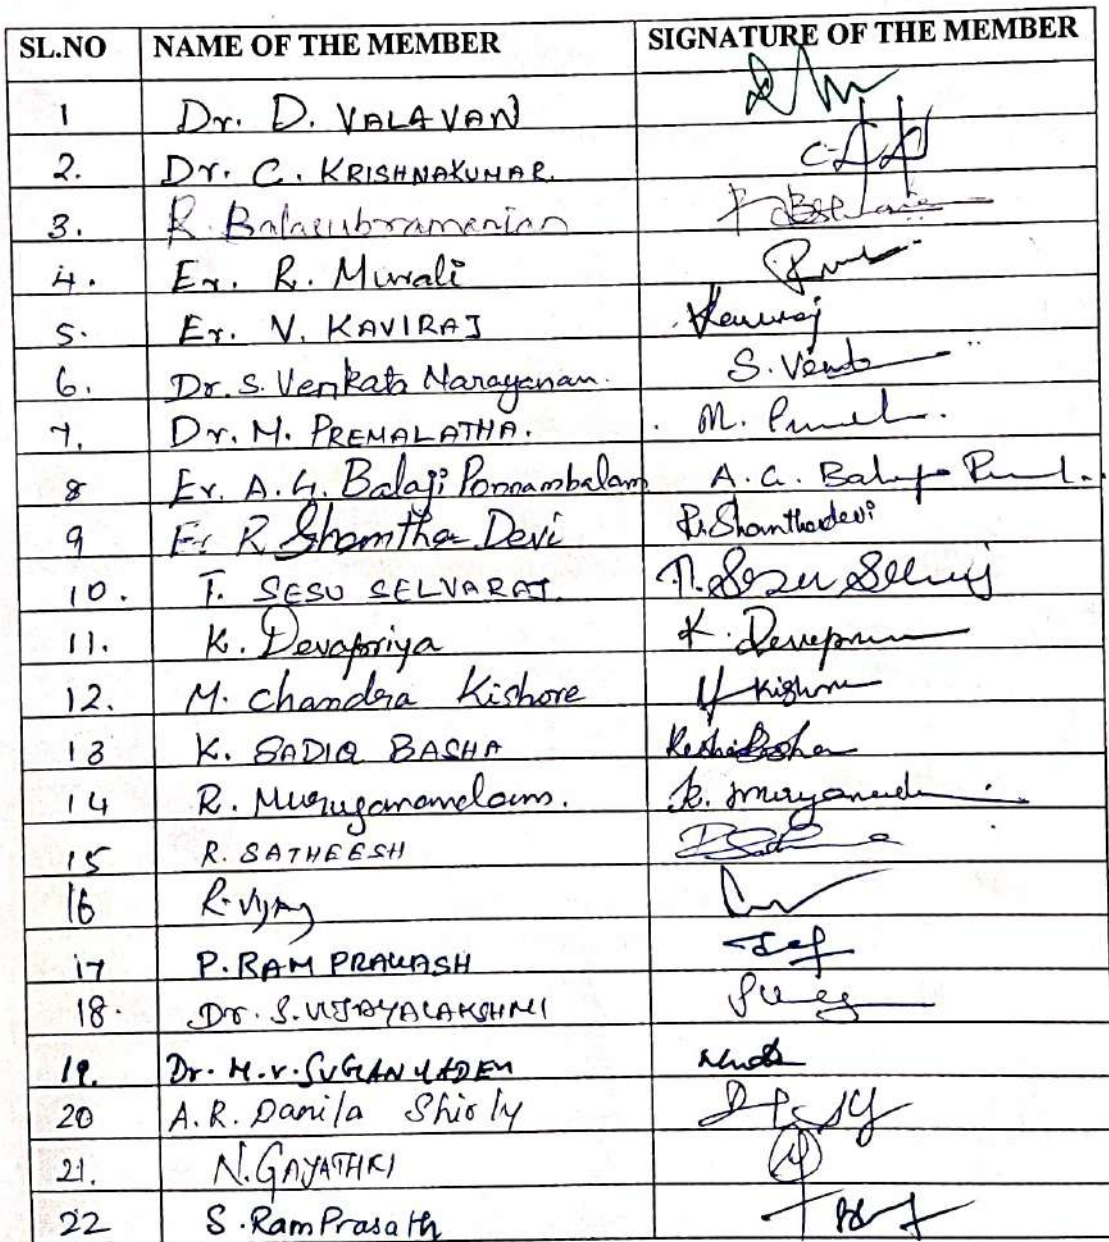 SL.NO NAME OF THE MEMBER SIGNATURE OF THE MEMBER
1 Dr. D. VALAVAN
2. Dr. C. KRISHNAKUMAR.
3. R. Balasubramanian
4. Er. R. Murali
5. Er. V. KAVIRAJ Kaviraj
6. Dr. S. Venkata Narayanan. S. Venk
7. Dr. M. PREMALATHA. M. Prem
8 Er. A. G. Balaji Ponnambalam A. G. Balaji
9 Er R Shamtha Devi R. Shamthadevi
10. T. SESU SELVARAJ. T. Sesu Selvaraj
11. K. Devapriya K. Devapriya
12. M. Chandra Kishore Kishore
13 K. SADIQ BASHA
14 R. Muruganandam. R. Muruganandam
15 R. SATHEESH
16 R. Vijay
17 P. RAM PRAKASH
18. Dr. S. VIJAYALAKSHMI
19. Dr. M. V. SUGANYADEVI
20 A. R. Danila Shirly
21. N. GAYATHRI
22 S. Ram Prasath